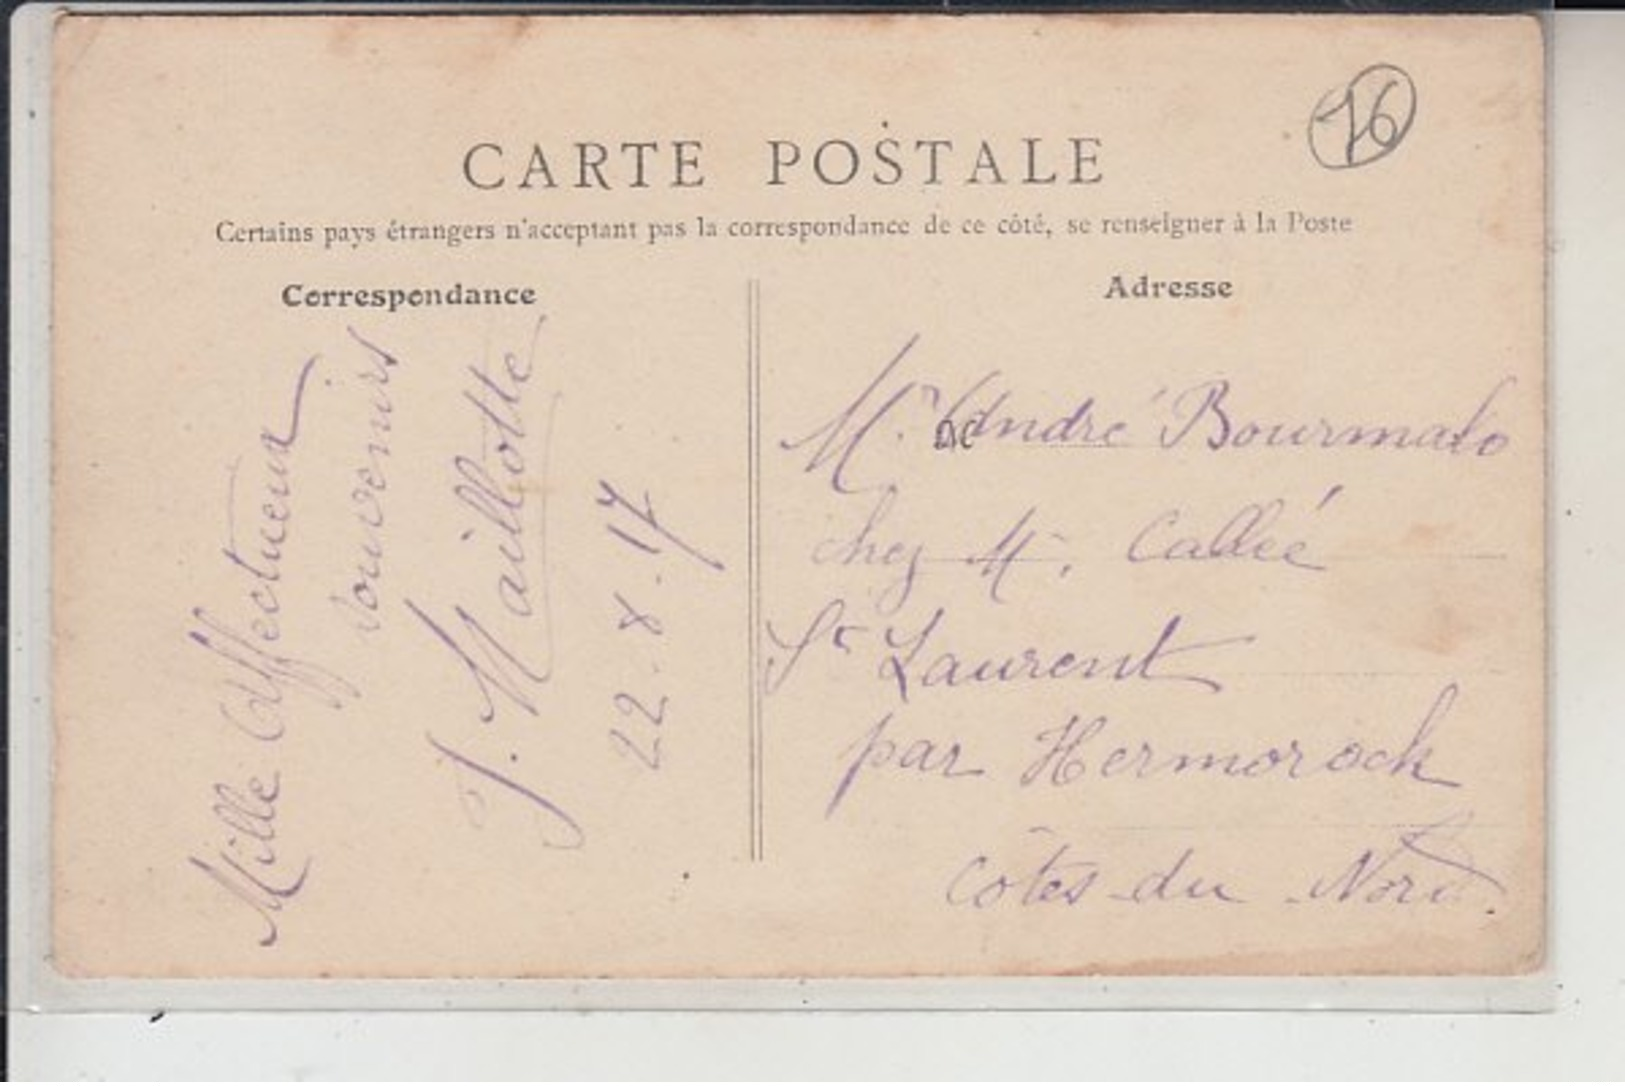 16
CARTE POSTALE
Certains pays étrangers n'acceptant pas la correspondance de ce côté, se renseigner à la Poste
Correspondance
Mille Affectueux
souvenirs
J. Maillotte
22.8.17
Adresse
Mr André Bourmalo
chez M. Callée
St Laurent
par Hermoroch
Côtes du Nord.